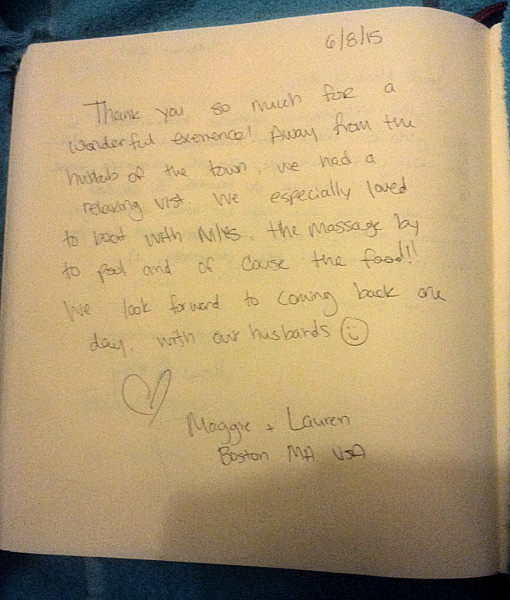 6/8/15
Thank you so much for a
wonderful exerience! Away from the
hubbub of the town, we had a
relaxing vist. We especially loved
to boat with the massage by
to pool and of couse the food!!
We look forward to coming back one
day. with our husbands ☺
♡
Maggie + Lauren
Boston MA USA